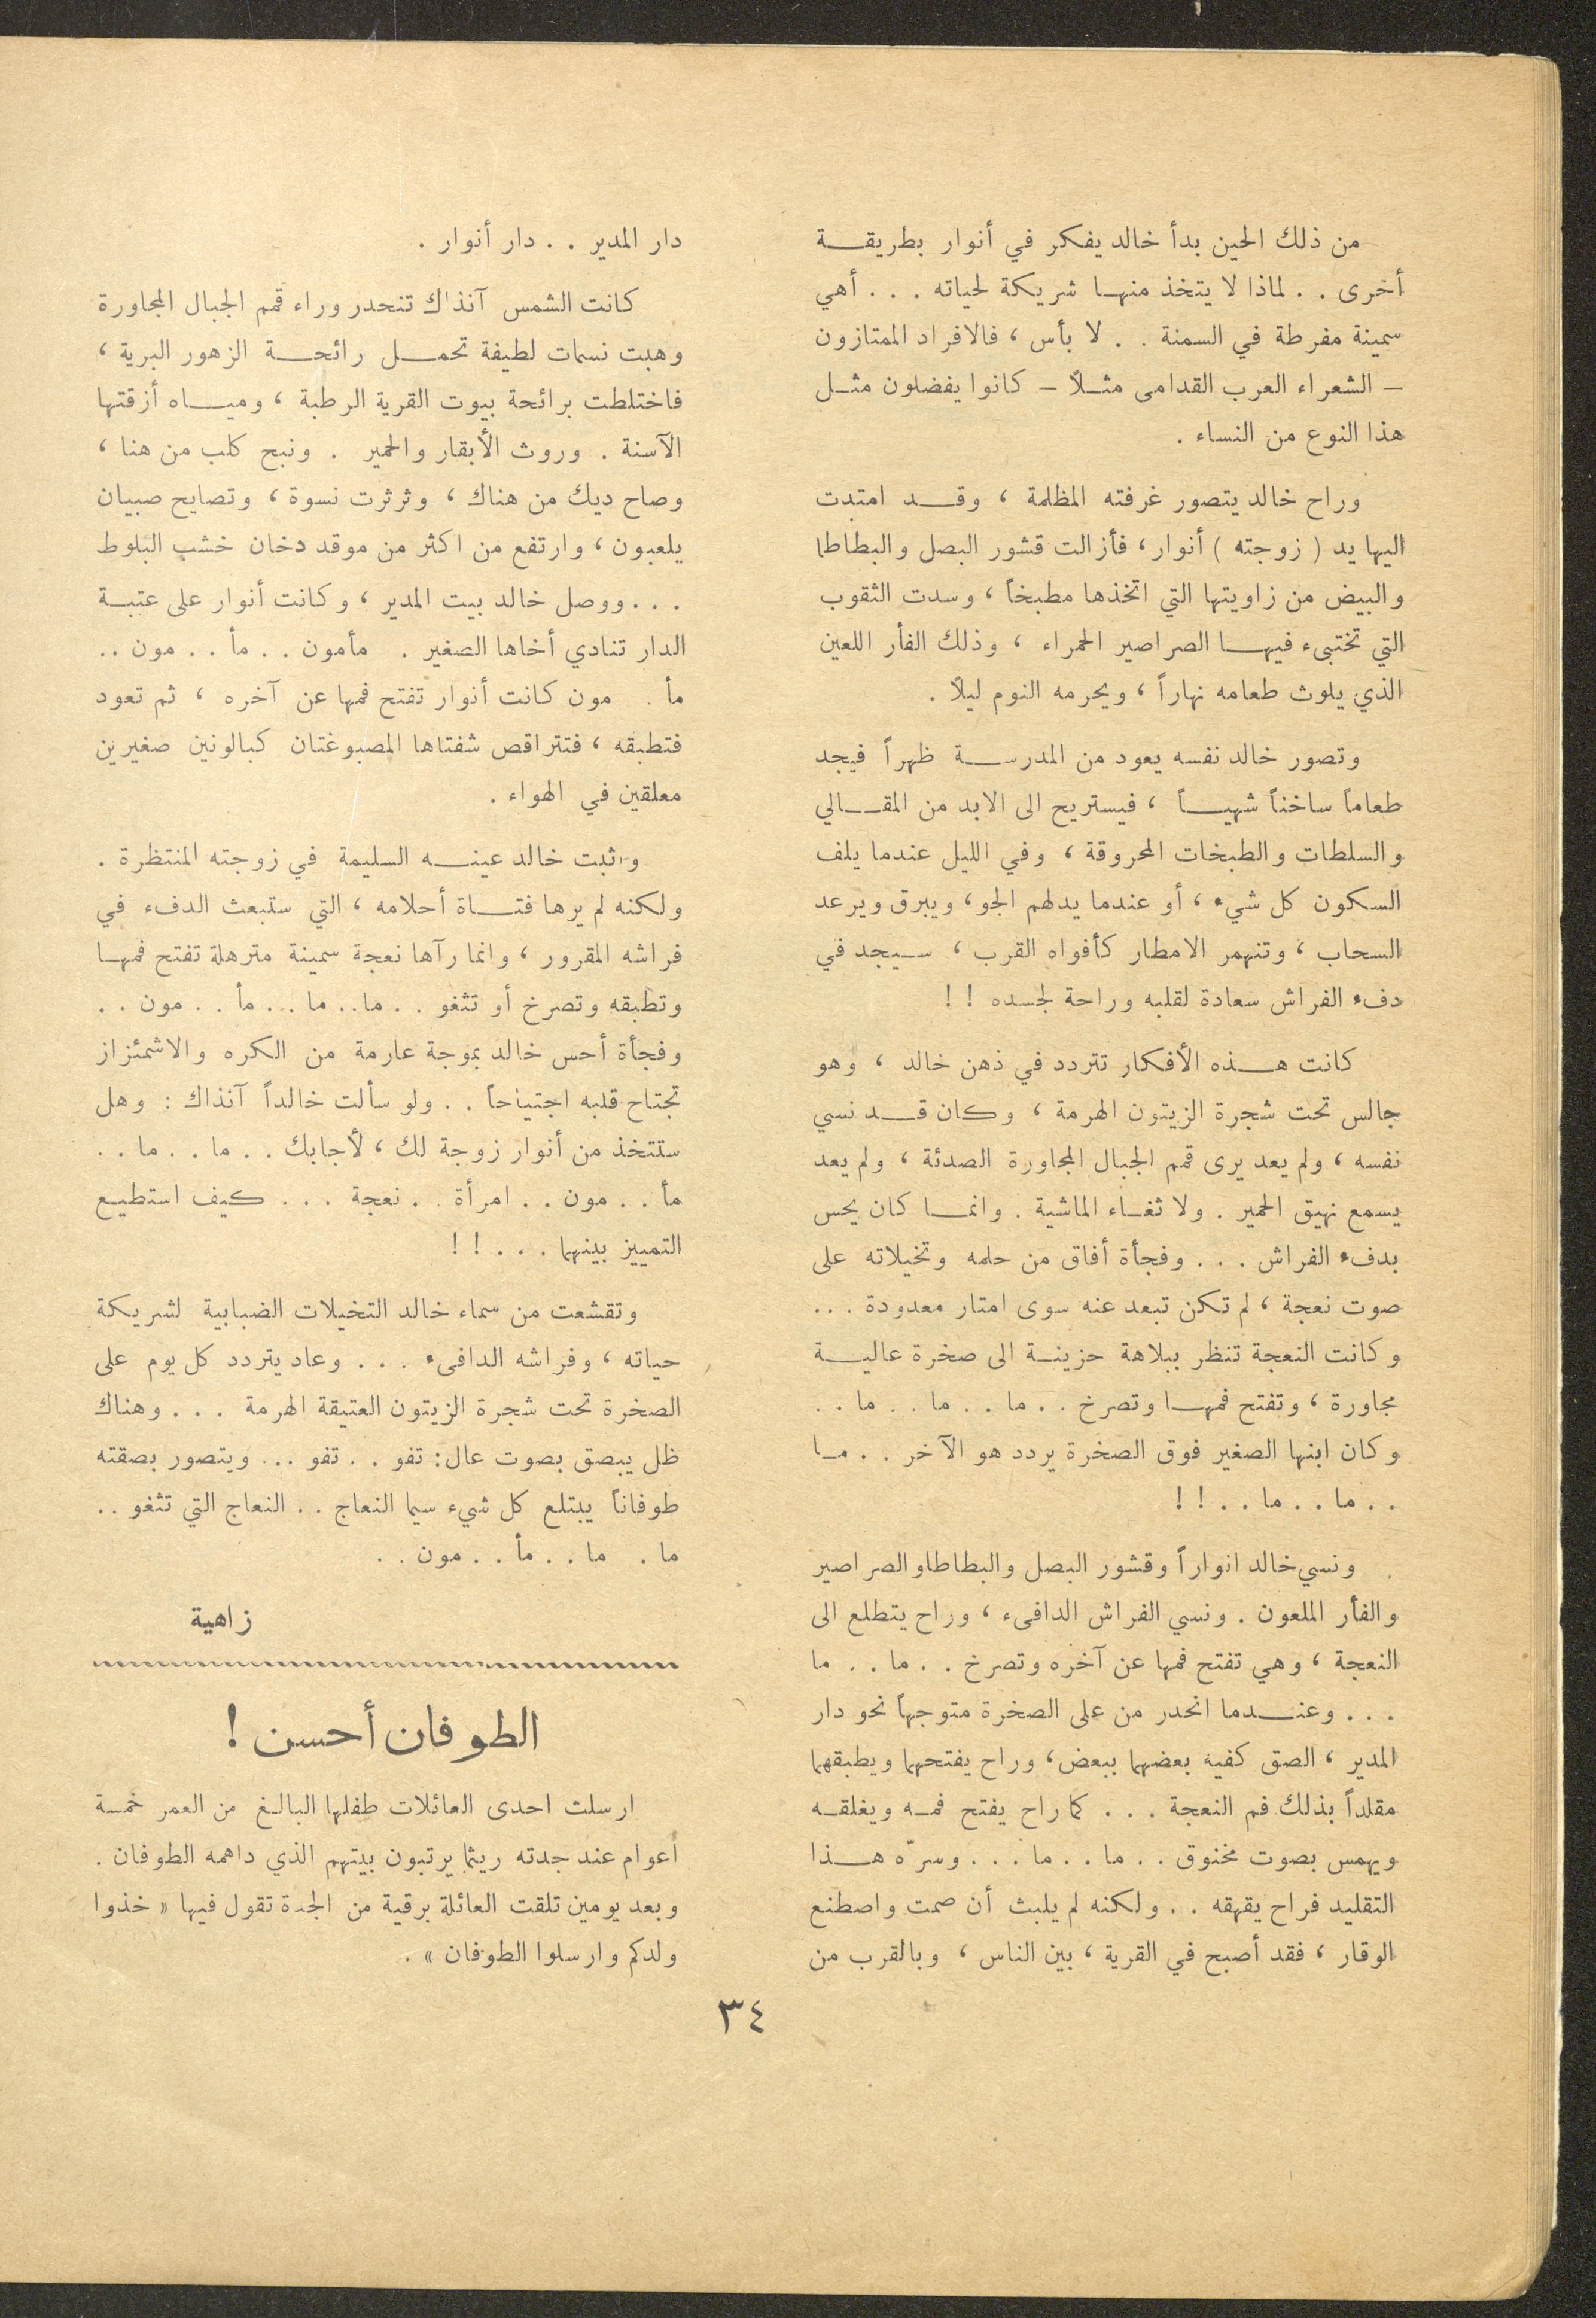 من ذلك الحين بدأ خالد يفكر في أنوار بطريقة
أخرى . . لماذا لا يتخذ منها شريكة لحياته . . . أهي
سمينة مفرطة في السمنة . . لا بأس ، فالافراد الممتازون
– الشعراء العرب القدامى مثلاً – كانوا يفضلون مثل
هذا النوع من النساء .
وراح خالد يتصور غرفته المظلمة ، وقد امتدت
اليها يد ( زوجته ) أنوار ، فأزالت قشور البصل والبطاطا
والبيض من زاويتها التي اتخذها مطبخاً ، وسدت الثقوب
التي تختبىء فيها الصراصير الحمراء ، وذلك الفأر اللعين
الذي يلوث طعامه نهاراً ، ويحرمه النوم ليلاً .
وتصور خالد نفسه يعود من المدرسة ظهراً فيجد
طعاماً ساخناً شهياً ، فيستريح الى الابد من المقالي
والسلطات والطبخات المحروقة ، وفي الليل عندما يلف
السكون كل شيء ، أو عندما يدلهم الجو ، ويبرق ويرعد
السحاب ، وتنهمر الامطار كأفواه القرب ، سيجد في
دفء الفراش سعادة لقلبه وراحة لجسده ! !
كانت هذه الأفكار تتردد في ذهن خالد ، وهو
جالس تحت شجرة الزيتون الهرمة ، وكان قد نسي
نفسه ، ولم يعد يرى قمم الجبال المجاورة الصدئة ، ولم يعد
يسمع نهيق الحمير . ولا ثغاء الماشية . وانما كان يحس
بدفء الفراش . . . وفجأة أفاق من حلمه وتخيلاته على
صوت نعجة ، لم تكن تبعد عنه سوى امتار معدودة . . .
وكانت النعجة تنظر ببلاهة حزينة الى صخرة عالية
مجاورة ، وتفتح فمها وتصرخ . . ما . . ما . . ما . .
وكان ابنها الصغير فوق الصخرة يردد هو الآخر . . ما
. . ما . . ما . . ! !
ونسي خالد انواراً وقشور البصل والبطاطا والصراصير
والفأر الملعون . ونسي الفراش الدافىء ، وراح يتطلع الى
النعجة ، وهي تفتح فمها عن آخره وتصرخ . . ما . . ما
. . . وعندما انحدر من على الصخرة متوجهاً نحو دار
المدير ، الصق كفيه بعضهما ببعض ، وراح يفتحهما ويطبقهما
مقلداً بذلك فم النعجة . . . كما راح يفتح فمه ويغلقه
ويهمس بصوت مخنوق . . ما . . ما . . . وسرّه هذا
التقليد فراح يقهقه . . ولكنه لم يلبث أن صمت واصطنع
الوقار ، فقد أصبح في القرية ، بين الناس ، وبالقرب من
دار المدير . . دار أنوار .
كانت الشمس آنذاك تنحدر وراء قمم الجبال المجاورة
وهبت نسمات لطيفة تحمل رائحة الزهور البرية ،
فاختلطت برائحة بيوت القرية الرطبة ، ومياه أزقتها
الآسنة . وروث الأبقار والحمير . ونبح كلب من هنا ،
وصاح ديك من هناك ، وثرثرت نسوة ، وتصايح صبيان
يلعبون ، وارتفع من اكثر من موقد دخان خشب البلوط
. . . ووصل خالد بيت المدير ، وكانت أنوار على عتبة
الدار تنادي أخاها الصغير . مأمون . . مأ . . مون . .
مأ . مون كانت أنوار تفتح فمها عن آخره ، ثم تعود
فتطبقه ، فتتراقص شفتاها المصبوغتان كبالونين صغيرين
معلقين في الهواء .
وثبت خالد عينه السليمة في زوجته المنتظرة .
ولكنه لم يرها فتاة أحلامه ، التي ستبعث الدفء في
فراشه المقرور ، وانما رآها نعجة سمينة مترهلة تفتح فمها
وتطبقه وتصرخ أو تثغو . . ما . . ما . . مأ . . مون . .
وفجأة أحس خالد بموجة عارمة من الكره والاشمئزاز
تجتاح قلبه اجتياحاً . . ولو سألت خالداً آنذاك : وهل
ستتخذ من أنوار زوجة لك ، لأجابك . . ما . . ما . .
مأ . . مون . . امرأة . . نعجة . . . كيف استطيع
التمييز بينهما . . . ! !
وتقشعت من سماء خالد التخيلات الضبابية لشريكة
حياته ، وفراشه الدافىء . . . وعاد يتردد كل يوم على
الصخرة تحت شجرة الزيتون العتيقة الهرمة . . . وهناك
ظل يبصق بصوت عال : تفو . . تفو . . . ويتصور بصقته
طوفاناً يبتلع كل شيء سيما النعاج . . النعاج التي تثغو . .
ما . ما . . مأ . . مون . .
زاهية
الطوفان أحسن !
ارسلت احدى العائلات طفلها البالغ من العمر خمسة
اعوام عند جدته ريثما يرتبون بيتهم الذي داهمه الطوفان .
وبعد يومين تلقت العائلة برقية من الجدة تقول فيها « خذوا
ولدكم وارسلوا الطوفان » .
٣٤